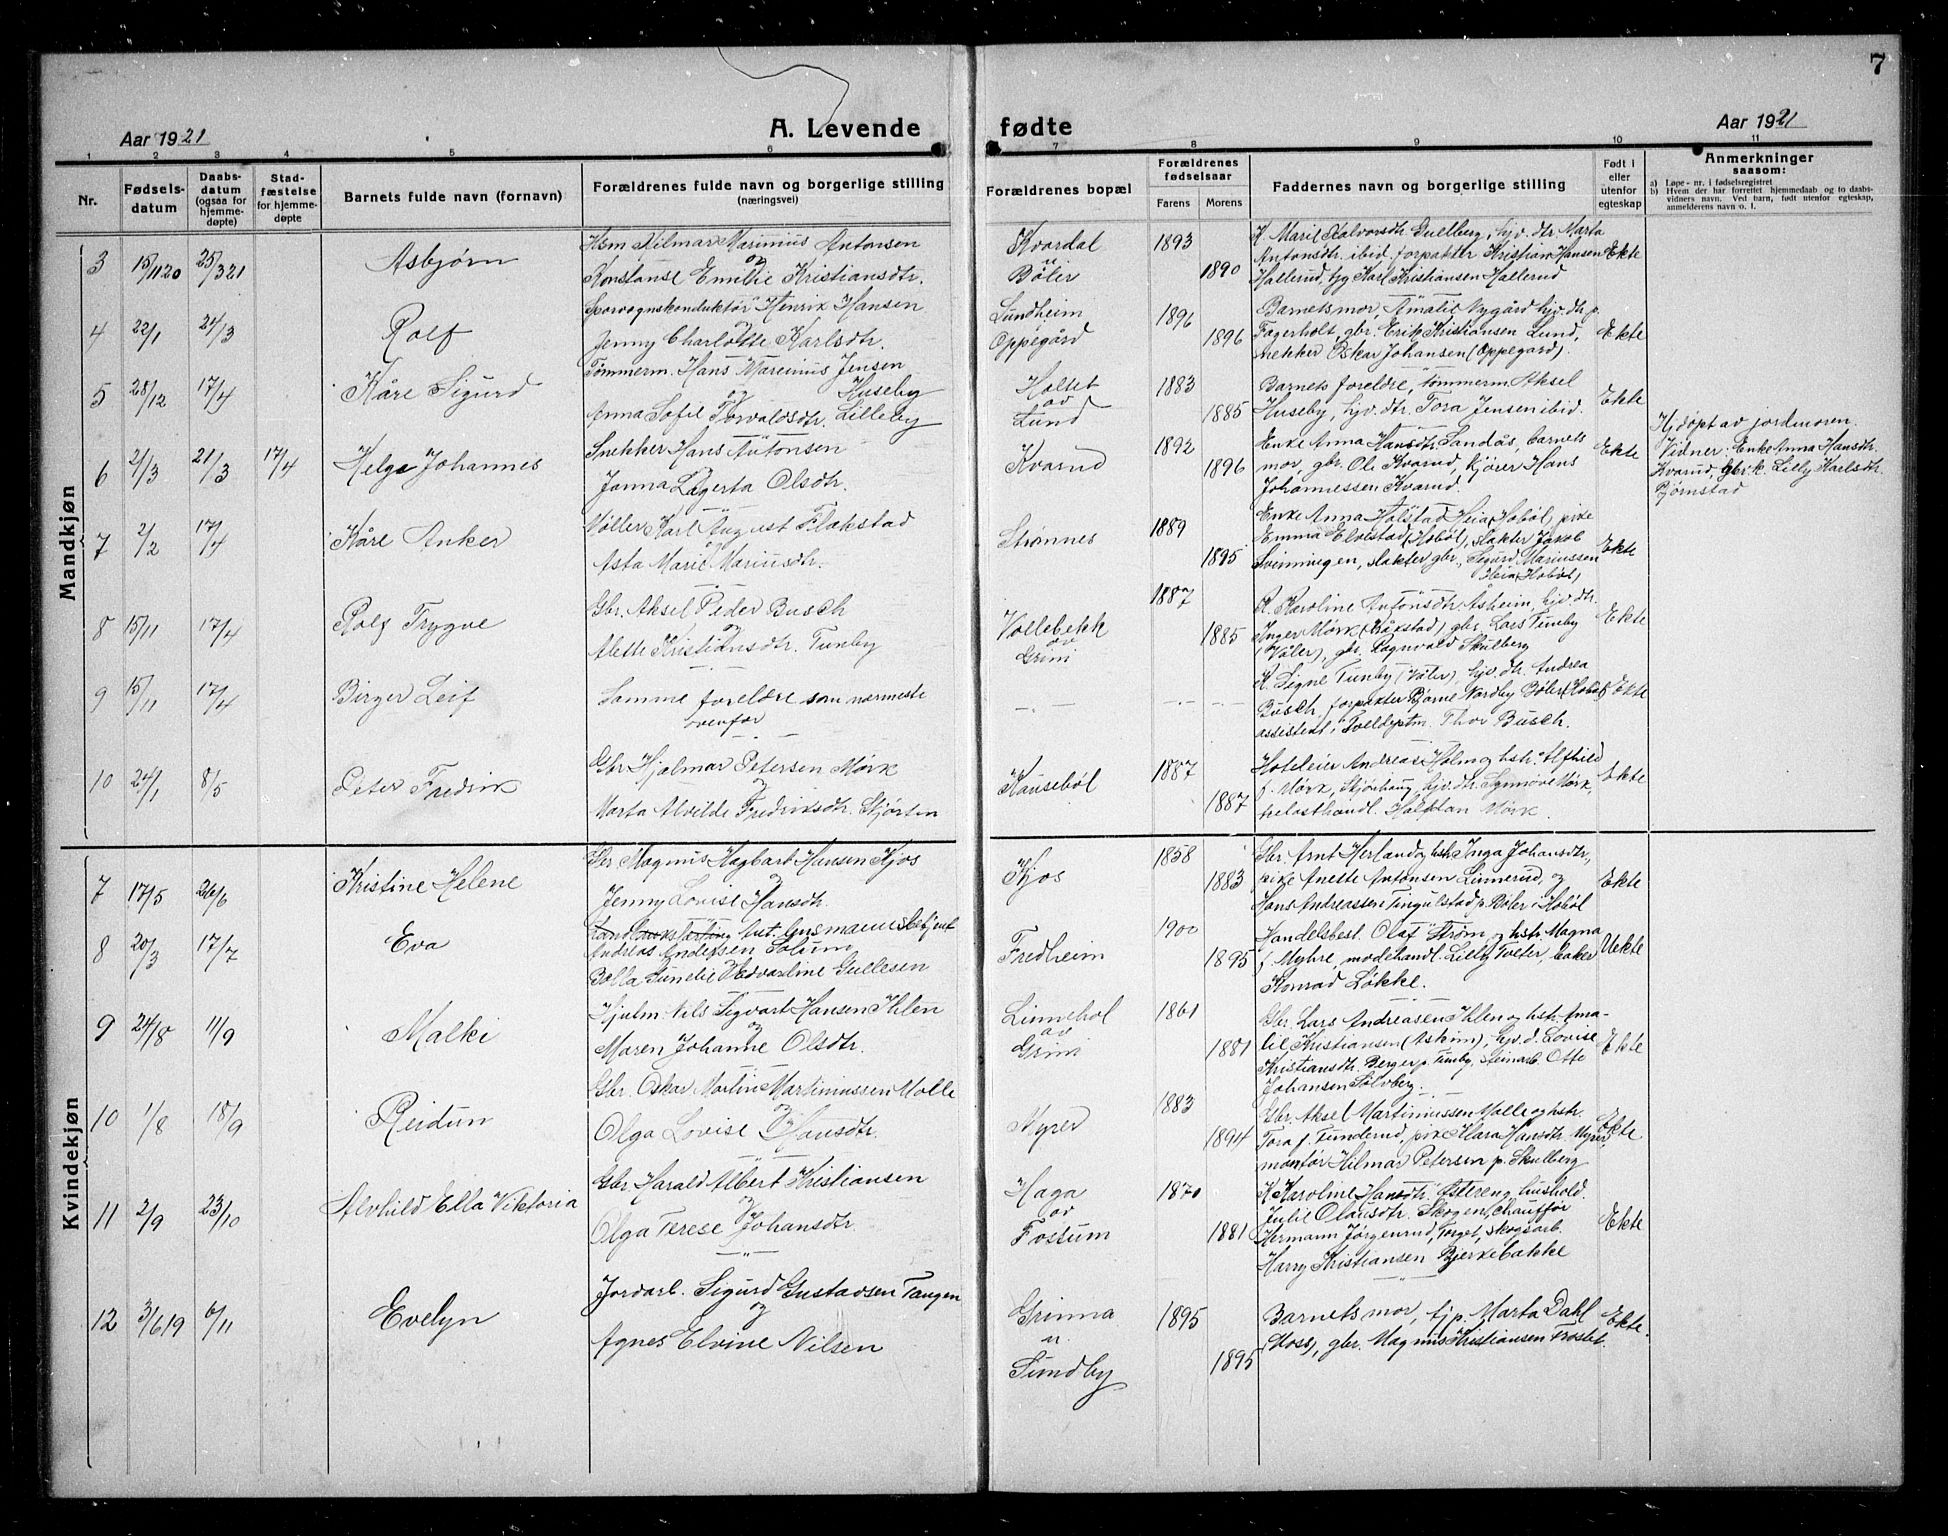 7
Aar 1921
A. Levende fødte
Aar 1921
1 2 3 4 5 6 7 8 9 10 11
Nr.
Fødsels-
datum
Daabs-
datum
(ogsaa for
hjemme-
døpte)
Stad-
fæstelse
for hjemme-
døpte
Barnets fulde navn (fornavn)
Forældrenes fulde navn og borgerlige stilling
(næringsvei)
Forældrenes bopæl
Forældrenes
fødselsaar
Farens. Morens
Faddernes navn og borgerlige stilling
Født i
eller
utenfor
egteskap
Anmerkninger
saasom:
a) Løpe-nr. i fødselsregistret
b) Hvem der har forrettet hjemmedaab og to daabs-
vidners navn. Ved barn, født utenfor egteskap,
anmelderens navn o. l.
Mandkjøn
3 15/11 20 25/3 21 Asbjørn
Hsm Hilmar Marinius Antonsen
og
Konstanse Emilie Kristiansdtr.
Kvardal
u
Bøler
1893
1890
K. Marie Halvorsdtr Gullberg, hjv. dtr Marta
Antonsdtr. ibid. forpakter Kristian Hansen
Hallerud, tyg Karl Kristiansen Hallerud
Ekte
4 22/1 24/3 Rolf
Sporvognskonduktør Henrik Hansen
og
Jenny Charlotte Karlsdtr.
Lundheim
Oppegård
1896
1896
Barnets mor, Amalie Nygård hjv. dtr. p.
Fagerholt, gbr. Erik Kristiansen Lund,
snekker Oskar Johansen (Oppegård).
Ekte
5 28/12 17/4 Kåre Sigurd
Tømmerm. Hans Marinius Jensen
og Huseby
Anna Sofie Torvaldsdtr. Lilleby
Holtet
av
Lund
1883
1885
Barnets foreldre, tømmerm Aksel
Huseby, hjv. dtr. Tora Jensen ibid.
Ekte
6 2/3 21/3 17/4 Helge Johannes
Snekker Hans Antonsen
og
Janna Lagerta Olsdtr.
Kvarud
1892
1896
Enke Anna Hansdtr Sandås, barnets
mor, gbr. Ole Kvarud, kjører Hans
Johannessen Kvarud.
Ekte
Hj.døpt av jordmoren.
Vidner: Enke Anna Hansdtr.
Kvarud, gbr.k. Lilly Karlsdtr.
Bjørnstad
7 2/2 17/4 Kåre Anker
Møller Karl August Flakstad
og
Asta Marie Mariusdtr.
Strømnes
1889
1895
Enke Anna Holstad Heia (Hobøl), pike
Emma Elvestad (Hobøl), slakter Jakob
Svinningen, slakter gbr. Sigurd Mariussen
Heia (Hobøl)
Ekte
8 15/11 17/4 Rolf Trygve
Gbr. Aksel Peder Busch
og
Alette Kristiansdtr. Tunby
Vollebekk
av
Grini
1887
1885
K. Karoline Antonsdtr Asheim, hjv. dtr.
Inger Mørk (Råkstad) gbr. Lars Tunby
(Våler), gbr. Ragnvald Skulberg
Ekte
9 15/11 17/4 Birger Leif
Samme foreldre som nærmeste
ovenfor
- " - - " -
K. Signe Tunby (Våler), hjv. dtr. Andrea
Busch, forpakter Bjarne Nordby Bøler (Hobøl)
assistent i Tolldeptm. Thor Busch.
Ekte
10 24/1 8/5 Peter Fredrik
Gbr Hjalmar Petersen Mørk
og
Marta Alvilde Fredriksdtr. Skjørten
Kausebøl
1887
1887
Hoteleier Andreas Holm og hstr. Alfhild
f. Mørk, Skjønhaug, hjv. dtr. Synnøve Mørk,
trelasthandl. Halfdan Mørk.
Ekte
Kvindekjøn
7 17/5 26/6 Kristine Helene
Gbr Magnus Hagbart Hansen Kjos
og
Jenny Lovise Hansdtr.
Kjos
1858
1883
Gbr. Arnt Herland og hstr. Inga Johansdtr,
pike Anette Antonsen Linnerud, og
Hans Andreassen Tingulstad p. Bøler i Hobøl
Ekte
8 20/3 17/7 Eva
Ant.
Andreas Andersen Solum
Bolla Gunelie Hedvarline Gullesen
Fredheim
1900
1895
Handelsbest. Olaf Strøm og hstr. Magna
f. Myhre, modehandl. Lilly Tveter, baker
Konrad Løkke.
Uekte
9 24/8 11/9 Malki
Hjulm Nils Sigvart Hansen Ihlen
og
Maren Johanne Olsdtr.
Linnehol
av
Grini
1861
1881
Gbr. Lars Andreasen Ihlen og hstr. Ama-
lie Kristiansen (Askim), hjv. d. Lovise
Kristiansdtr. Berger p. Tunby, steinarb. Otto
Johansen Solvberg.
Ekte
10 1/8 18/9 Reidun
Gbr. Oskar Martin Martiniussen Molle
og
Olga Lovise Hansdtr.
Myrer
1883
1894
Gbr. Aksel Martiniussen Molle og hstr.
Tora f. Tunderud, pike Klara Hansdtr. Myrer,
montør Hilmar Petersen p. Skulberg
Ekte
11 2/9 23/10 Alvhild Ella Viktoria
Gbr Harald Albert Kristiansen
og
Olga Terese Johansdtr.
Haga
av
Fossum
1870
1881
K. Karoline Hansdtr. Østereng, hushold.
Julie Olausdtr. Skogen, chauffør
Hermann Jørgenrud, Torget, skogsarb.
Harry Kristiansen Bjerkebakke
Ekte
12 3/6 19 6/11 Evelyn
Jordarb. Sigurd Gustavsen Tangen
og
Agnes Elvine Nilsen
Grinna
u.
Sundby
1895
1895
Barnets mor, tj.p. Marta Dahl
(Moss), gbr. Magnus Kristiansen Frostet.
Ekte.